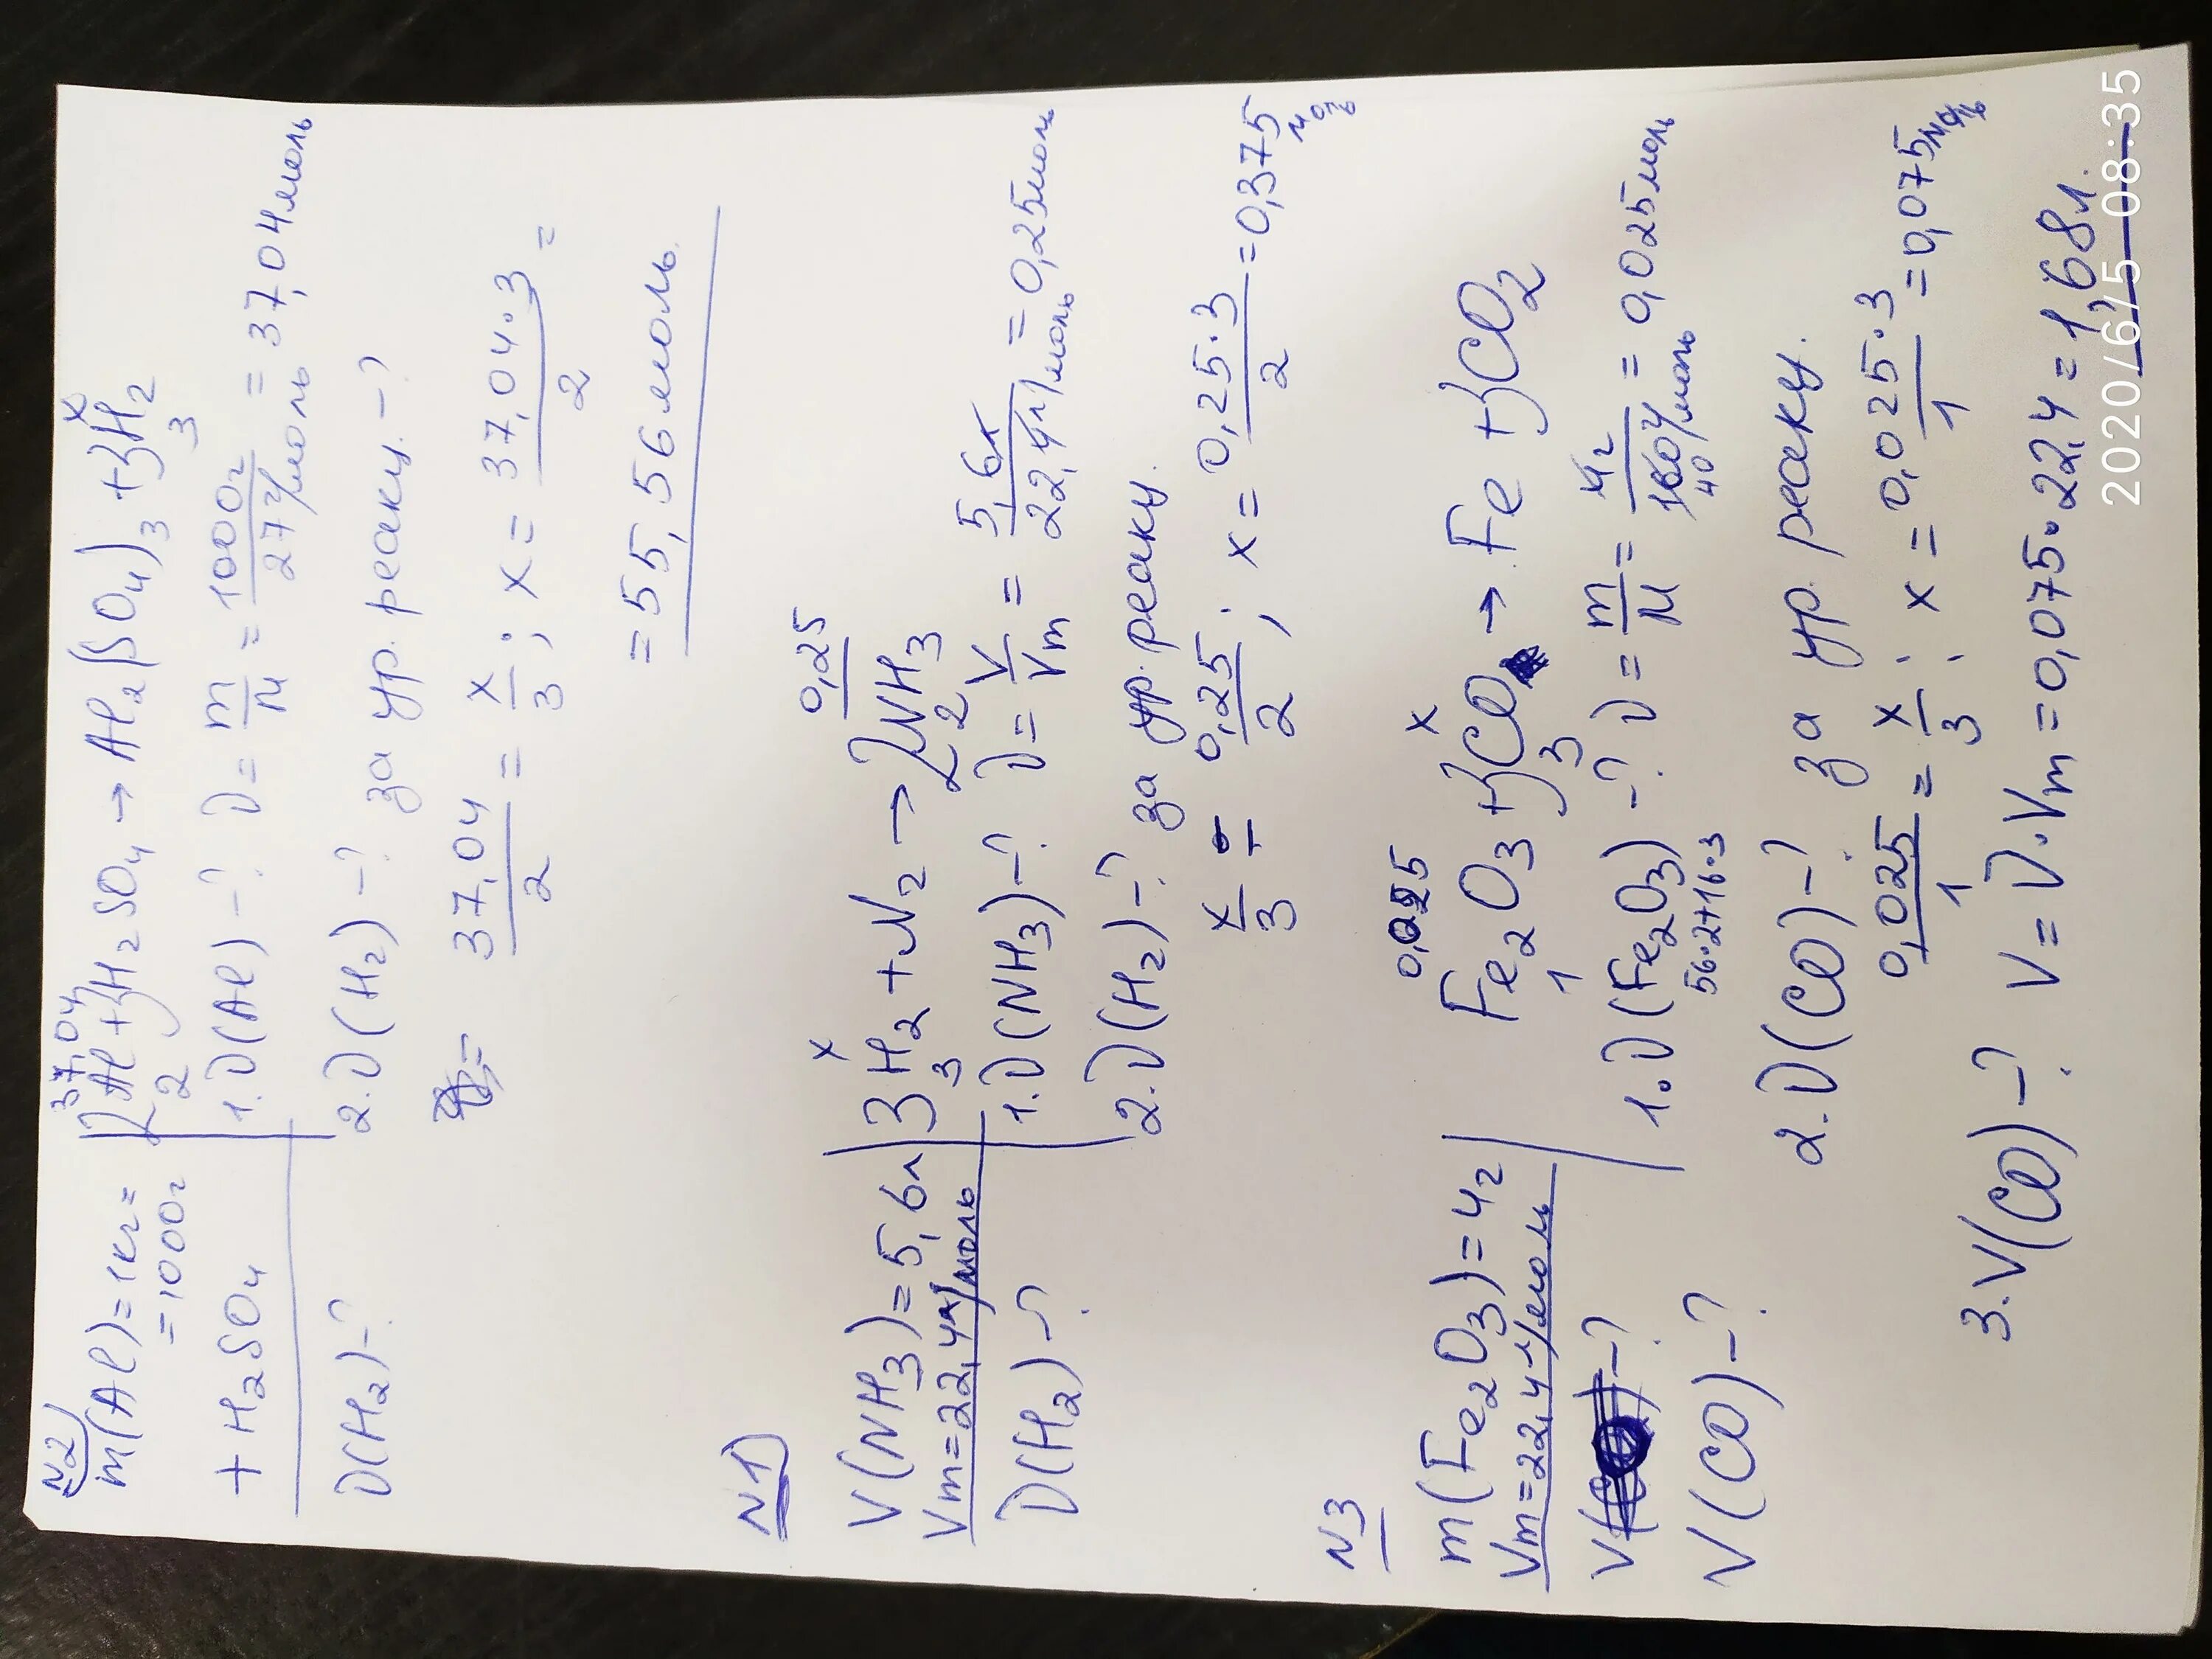 N2
m(Al)=1кг=
=1000г
+ H2SO4
ν(H2)-?
37,04 x
2Al+3H2SO4→Al2(SO4)3+3H2
2 3
1. ν(Al)-? ν=m/M=1000г/27г/моль=37,04моль
2. ν(H2)-? за ур. реакц.-?
37,04/2=x/3; x=37,04·3/2=
=55,56моль
N1
V(NH3)=5,6л
Vm=22,4л/моль
ν(H2)-?
x 0,25
3H2+N2→2NH3
3 2
1. ν(NH3)-? ν=V/Vm=5,6л/22,4л/моль=0,25моль
2. ν(H2)-? за ур. реакц.
x/3=0,25/2; x=0,25·3/2=0,375моль
N3
m(Fe2O3)=4г
Vm=22,4л/моль
V(CO)-?
0,025 x
Fe2O3+3CO→Fe+3CO2
1 3
1. ν(Fe2O3)-? ν=m/M=4г/160г/моль=0,025моль
56·2+16·3 40
2. ν(CO)-? за ур. реакц.
0,025/1=x/3; x=0,025·3/1=0,075моль
3. V(CO)-? V=ν·Vm=0,075·22,4=1,68л.
2020/6/5 08:35